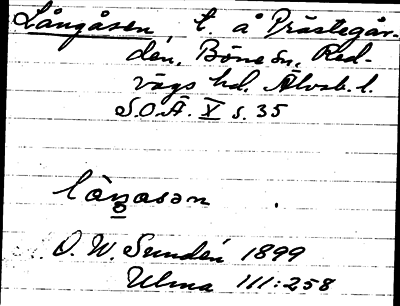 Långåsen, t. å Prästegår-
den, Böne sn, Red-
vägs hd. Älvsb. l.
S.O.Ä. X s. 35
låŋasən
O. W Sundén 1899
Ulma 111:258